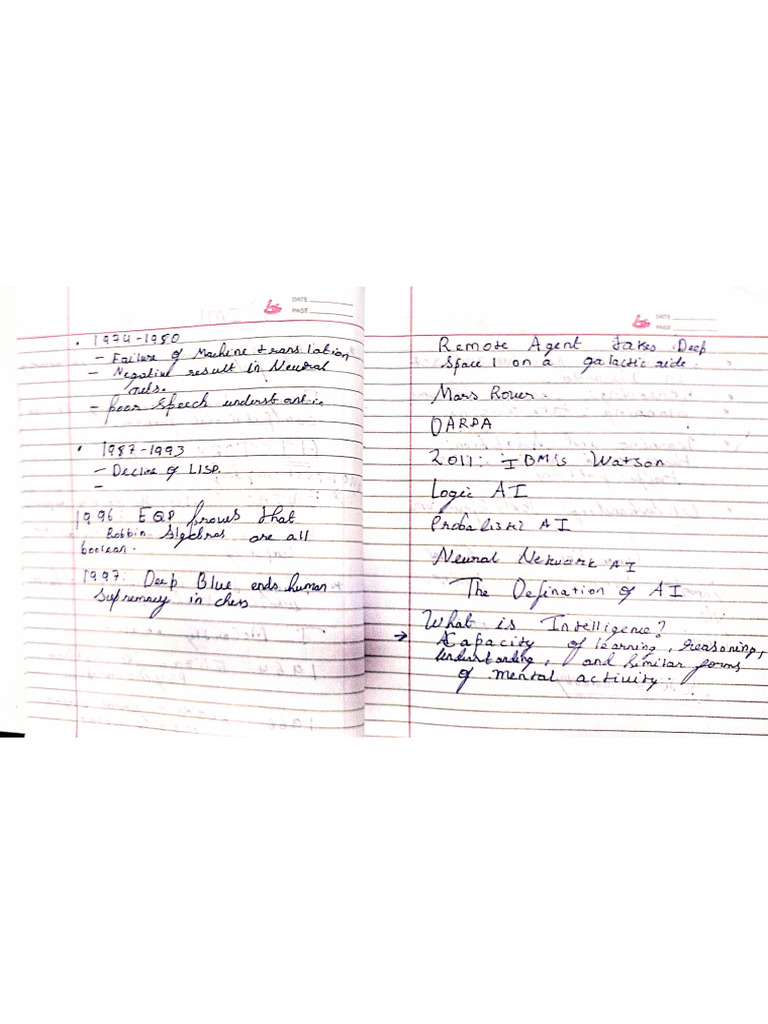 DATE
PAGE
• 1974-1980
- Failure of Machine translation
- Negative result in Neural
nets.
- poor speech understant
• 1987-1993
- Decline of LISP
-
1996: EQP proves that
Robbin Algebras are all
boolean.
1997: Deep Blue ends human
supremacy in chess
DATE
PAGE
Remote Agent takes Deep
Space 1 on a galactic ride.
Mars Rover.
DARPA
2011: IBM's Watson
Logic AI
Probalistic AI
Neural Network AI
The Defination of AI
What is Intelligence?
→ Capacity of learning, reasoning,
understanding, and similar forms
of mental activity.